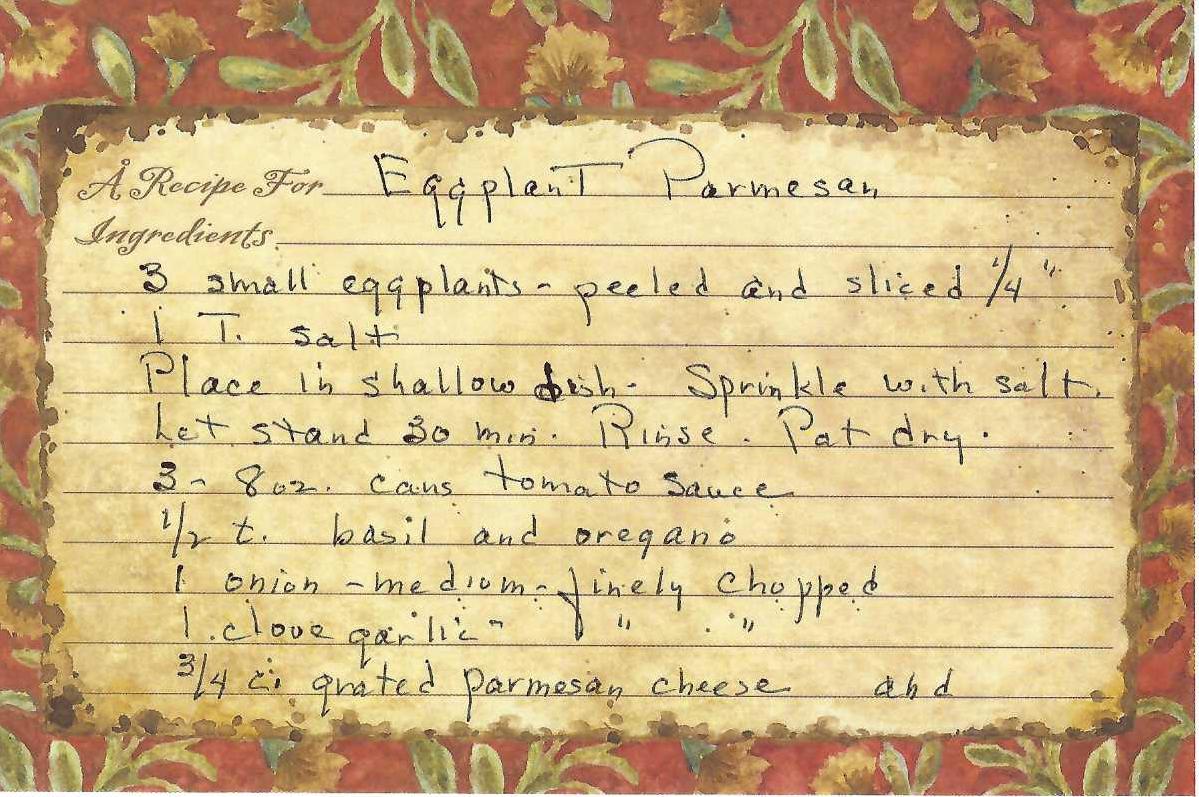 A Recipe For Eggplant Parmesan
Ingredients
3 small eggplants - peeled and sliced 1/4"
1 T. salt
Place in shallow dish - Sprinkle with salt.
Let stand 30 min. Rinse. Pat dry.
3 - 8 oz. cans tomato sauce
1/2 t. basil and oregano
1 onion - medium - finely chopped
1 clove garlic - " "
3/4 c. grated parmesan cheese and